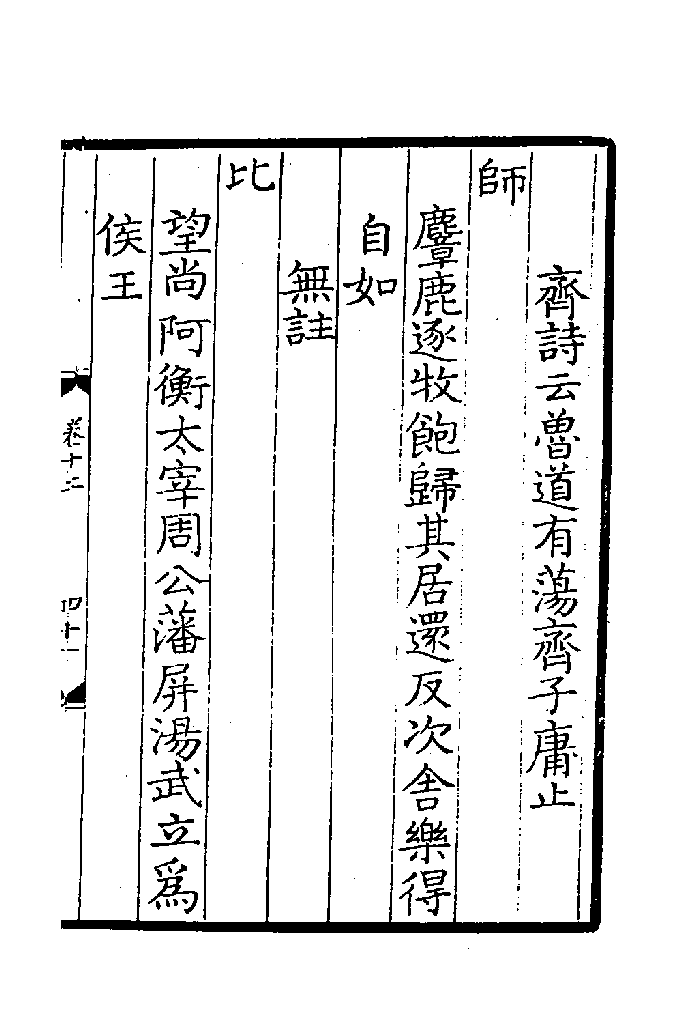 齊詩云魯道有蕩齊子庸止
師
麞鹿逐牧飽歸其居還反次舍樂得
自如
無註
比
望尚阿衡太宰周公藩屏湯武立為
侯王
卷十二
四十一